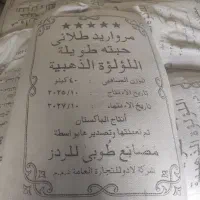 مرواريد طلائي
حبته طويلة
اللؤلؤة الذهبية
الوزن الصافي ٤٠ كيلو
تاريخ الانتاج ٢٠٢٥/١٠
تاريخ الانتهاء ٢٠٢٧/١٠
انتاج الباكستان
تم تعبئتها وتصديرها بواسطة
مصانع طوبى للرز
للتجارة العامة